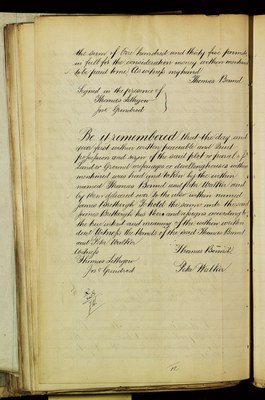 the sum of One hundred and thirty five pounds
in full for the consideration money within mentioned
to be paid hime Witness my hand
Thomas Brund
Signed in the presence of
Thomas Lethgow
Jnr Grindrod
Be it remembered that the day and
year first within written peaceable and Quiet
possession and seizin of the said plot or parcel of
land or Ground messuages or dwellinghouses within
mentioned was had and taken by the within
named Thomas Brund and Peter Walker and
by them delivered over to the also within named
James To hold the same unto the said
James his Heirs and assigns according to
the true intent and meaning of the within written
deed Witness the Hands of the said Thomas Brund
and Peter Walker
Witness
Thomas Brund
Thomas Lethgow
Jnr Grindrod
Peter Walker